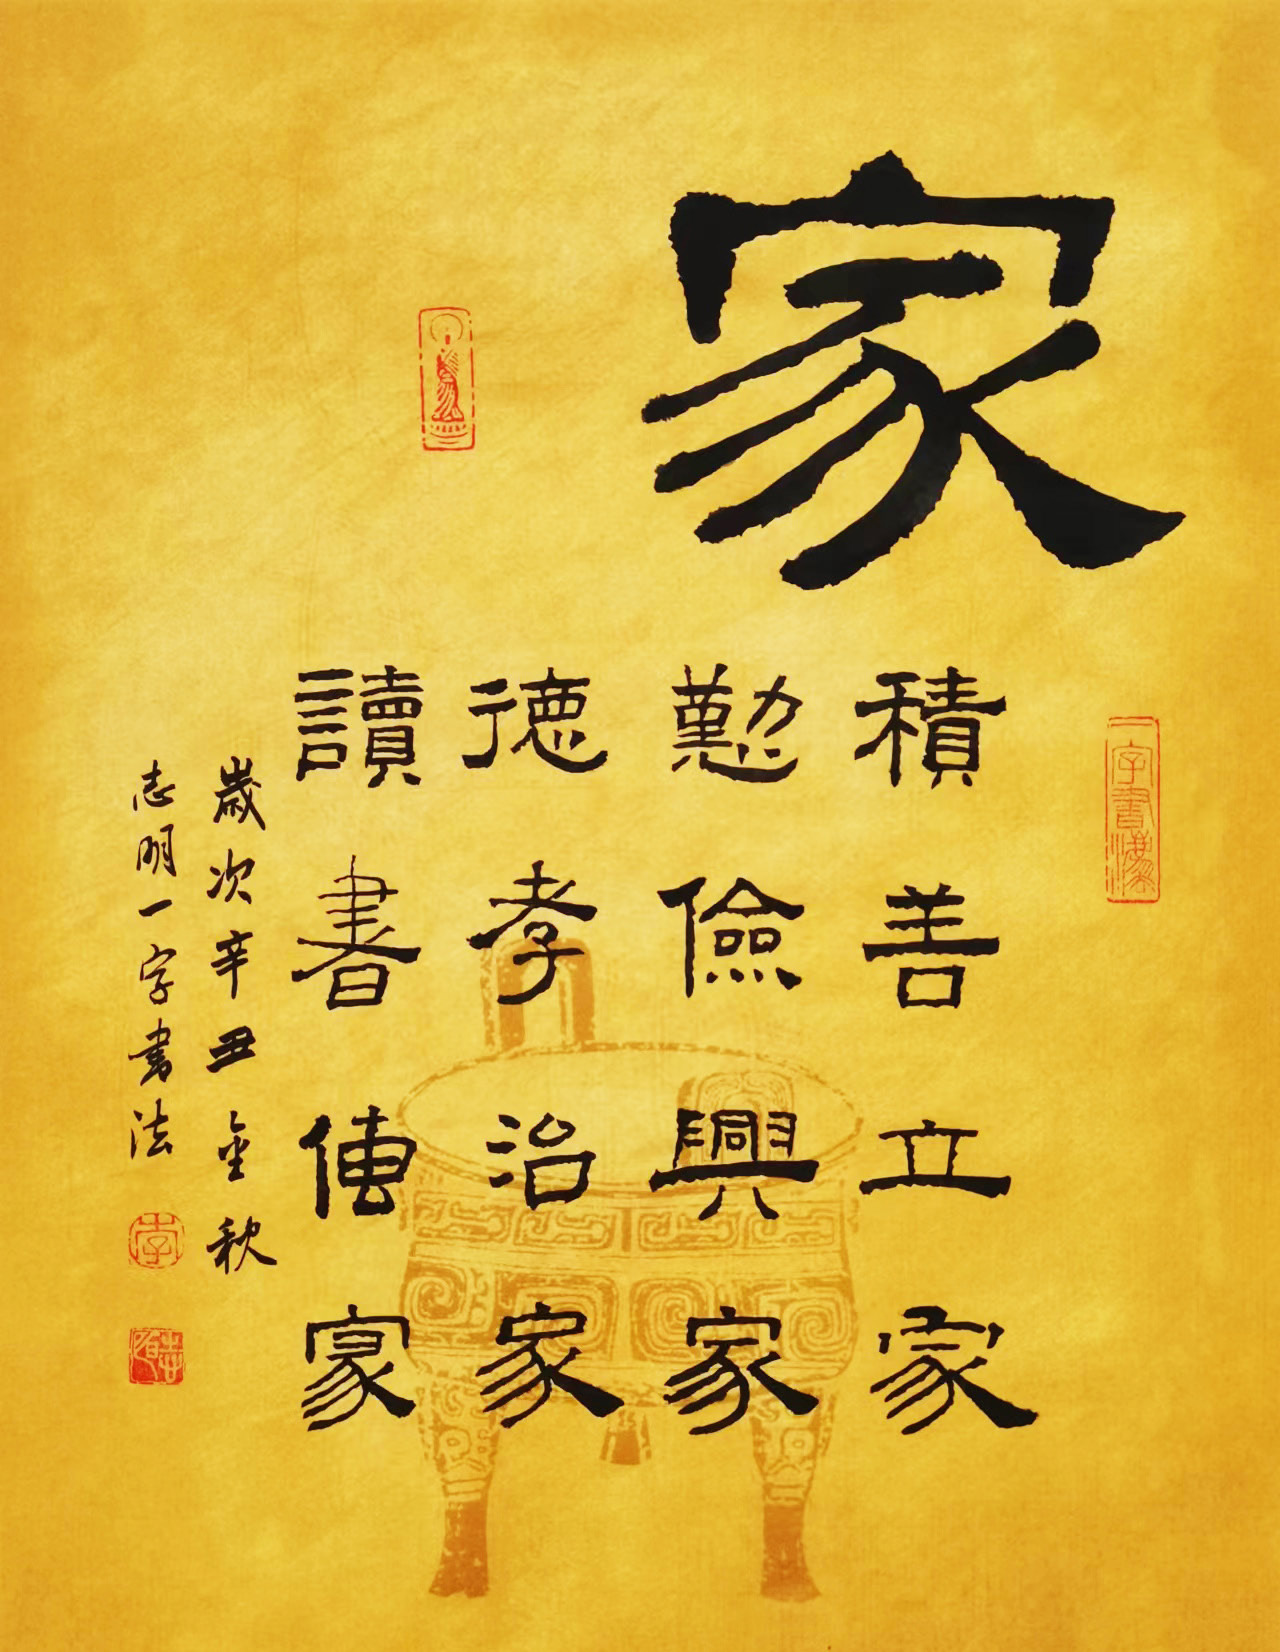 家
積善立家
懃儉興家
德孝治家
讀書傳家
歲次辛丑金秋
志明一字書法
李